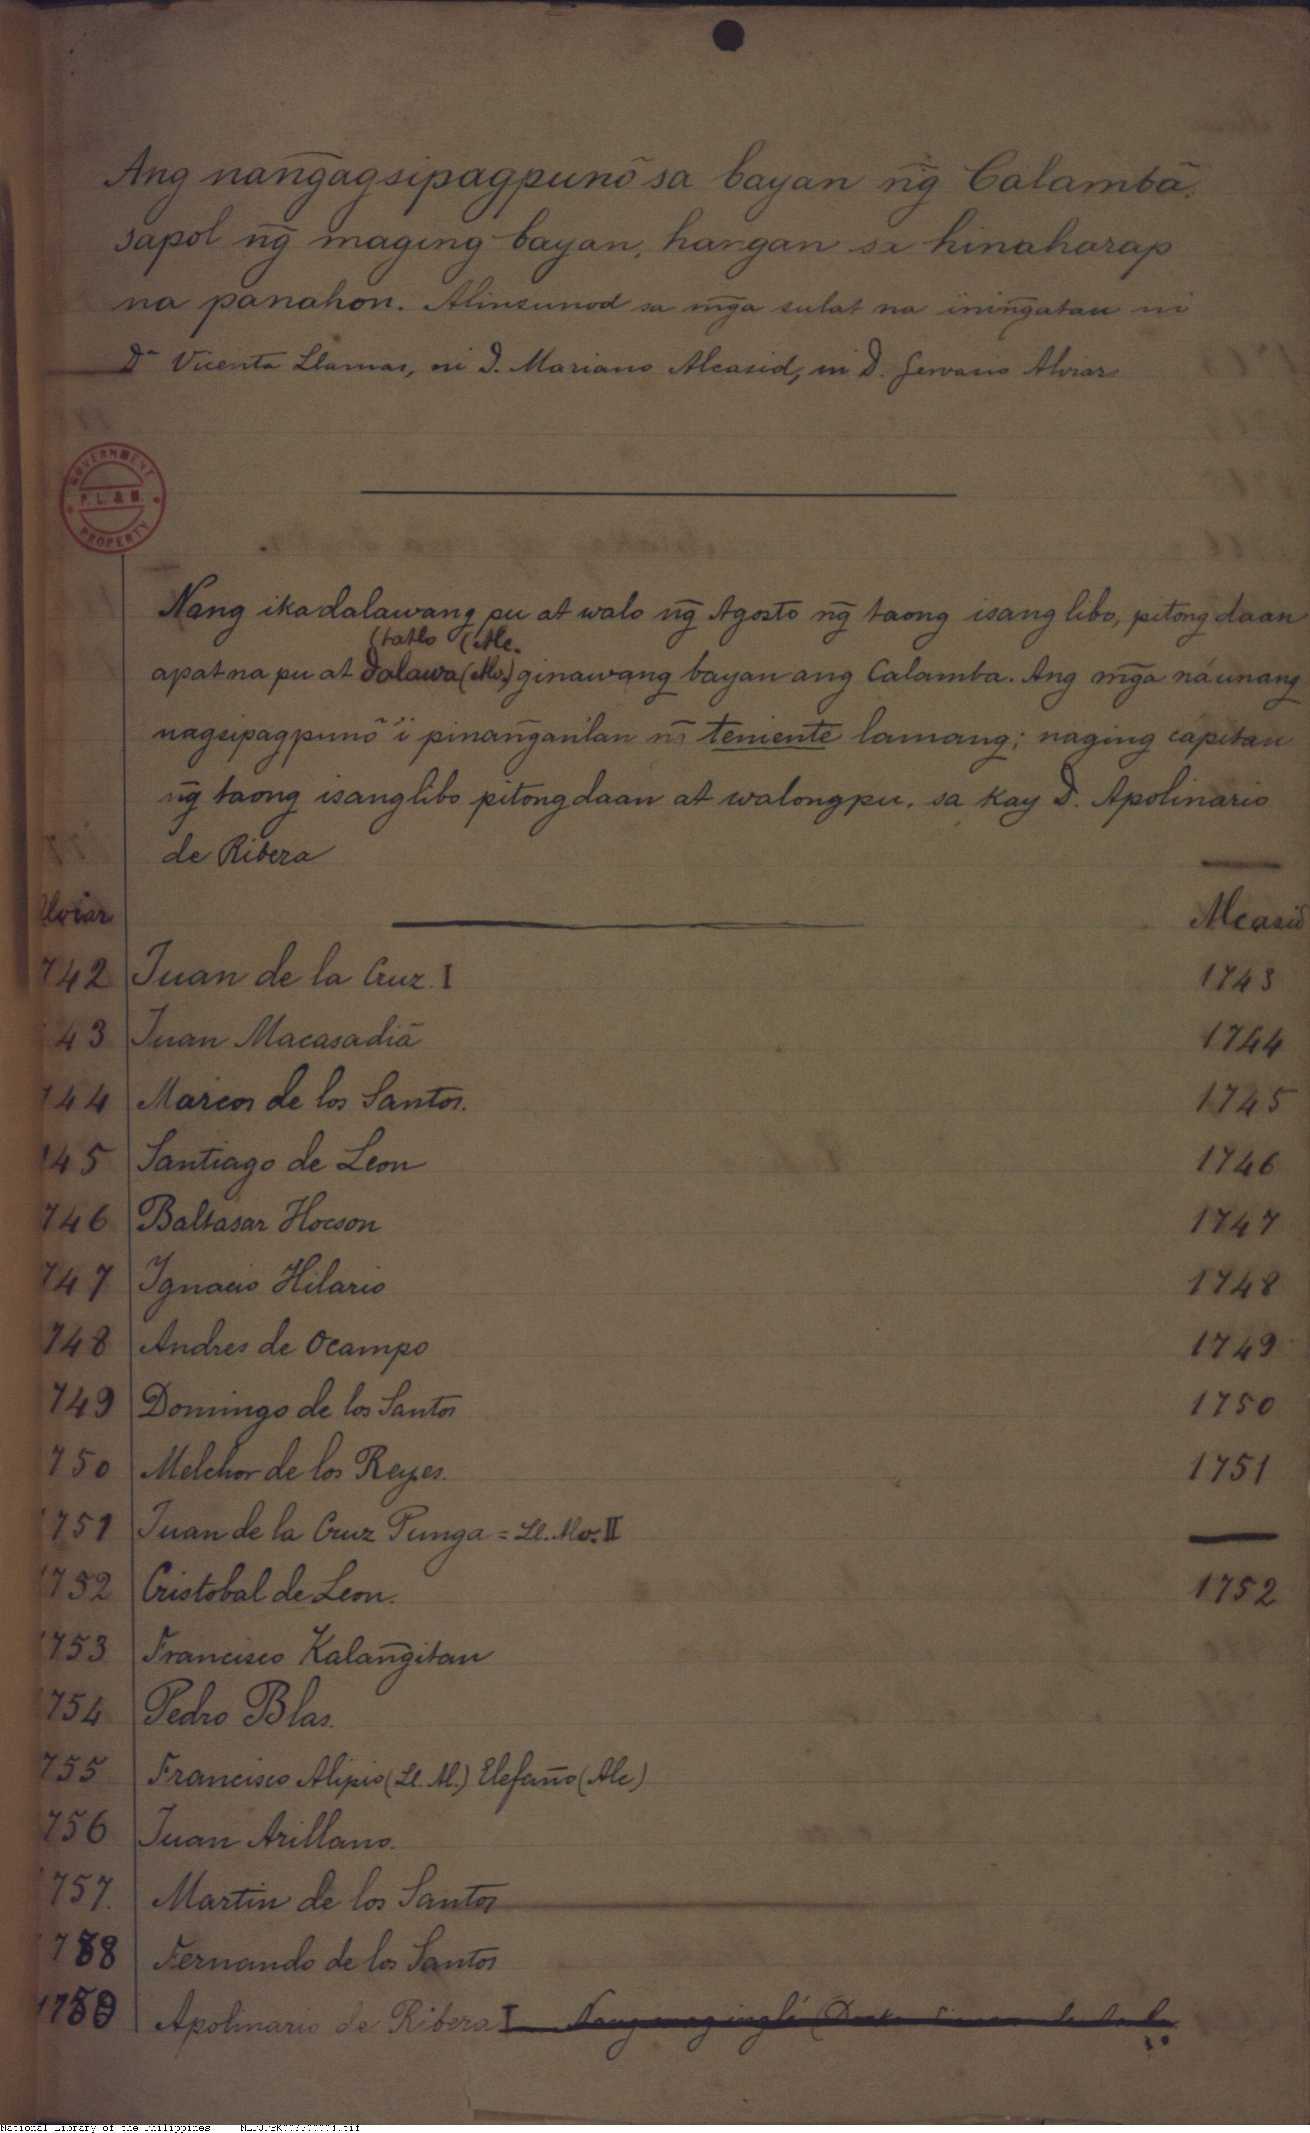 Ang nang̃agsipagpunô sa bayan ng̃ Calambâ.
sapol ng̃ maging bayan, hangan sa hinaharap
na panahon. Alinsunod sa mg̃a sulat na ining̃atan ni
Dª Vicenta Llamas, ni D. Mariano Alcasid, ni D. Gervasio Alviar
GOVERNMENT
P. L. & M.
PROPERTY
Nang ikadalawang pu at walo ng̃ Agosto ng̃ taong isang libo, pitong daan
(tatlo (Alc.
apat na pu at dalawa (Alv.) ginawang bayan ang Calamba. Ang mg̃a náunang
nagsipagpunô'i pinang̃anlan ng̃ teniente lamang; naging capitan
ng̃ taong isanglibo pitong daan at walongpu, sa kay D. Apolinario
de Ribera
Alviar Alcasid
742 Juan de la Cruz. I 1743
43 Juan Macasadiâ 1744
744 Marcos de los Santos. 1745
745 Santiago de Leon 1746
746 Baltasar Hocson 1747
747 Ignacio Hilario 1748
748 Andres de Ocampo 1749
749 Domingo de los Santos 1750
750 Melchor de los Reyes. 1751
1751 Juan de la Cruz Punga = Ll. Alv. II
1752 Cristobal de Leon. 1752
1753 Francisco Kalang̃itan
1754 Pedro Blas.
755 Francisco Alipio (Ll. Al.) Elefaño (Alc)
756 Juan Arillano.
1757. Martin de los Santos
1758 Fernando de los Santos
1759 Apolinario de Ribera I
National Library of the Philippines